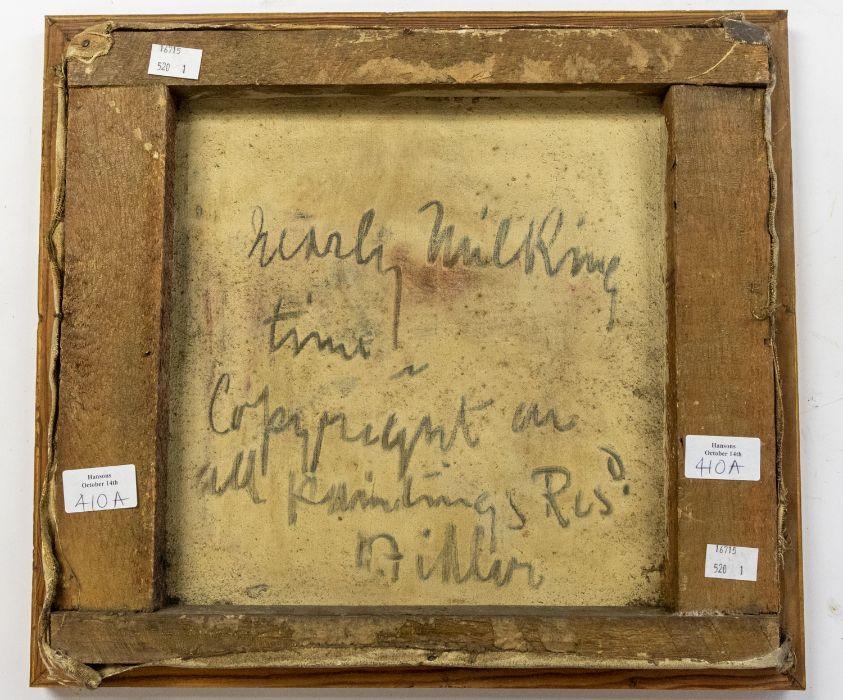 16715
520 1
nearly Milking
time
Copyright on
all paintings Resᵈ.
Hansons
October 14th
410A
Hansons
October 14th
410A
16715
520 1